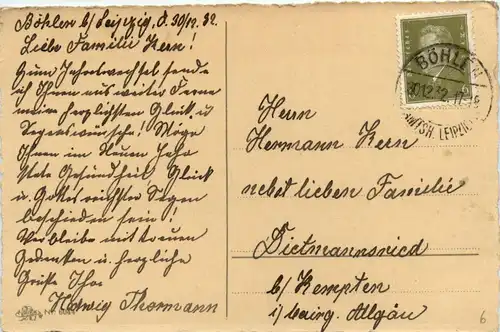 Böhlen b/ Leipzig, d. 30/12. 32.
Liebe Familie Kern!
Zum Jahreswechsel sende
ich Ihnen aus weiter Ferne
meine herzlichsten Glück u
Segenswünsche! Möge
Ihnen im Neuen Jahr
stete Gesundheit, Glück
u Gottes reichster Segen
beschieden sein!
Verbleibe mit treuen
Gedanken u. herzliche
Grüße Ihr
Thormann
Herrn
Hermann Kern
nebst lieben Familie
Dietmannsried
b/ Kempten
i/ bairg. Allgäu
BÖHLEN
30.12.32
6